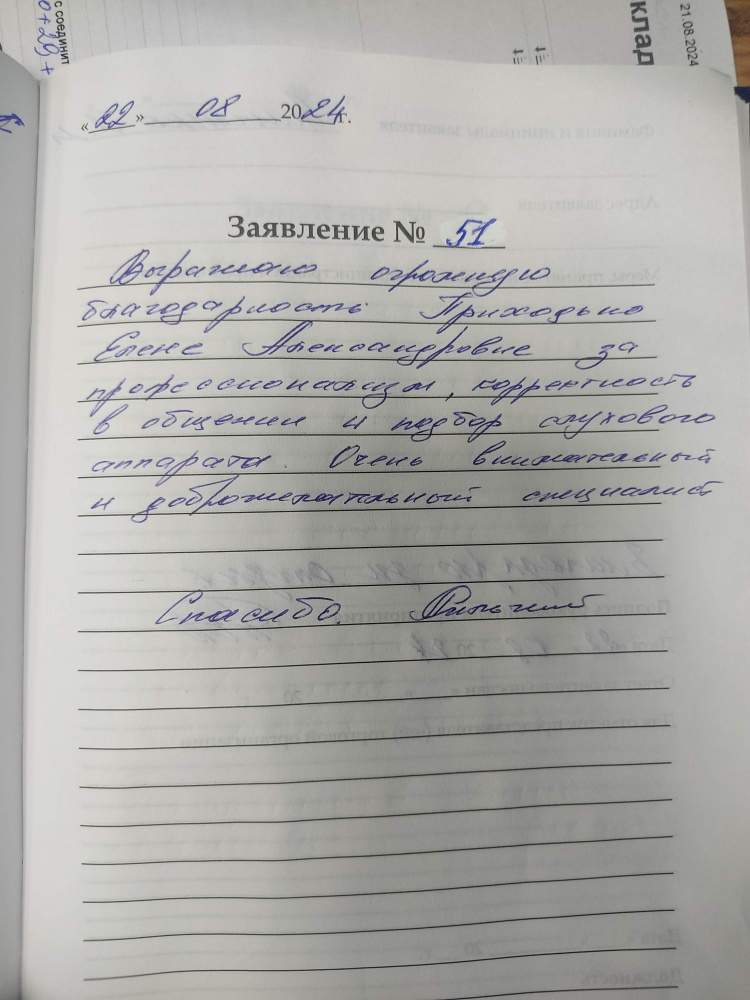 21.08.2024
клад
с соединит
«22» 08 2024г.
Заявление № 51
Выражаю огромную
благодарность Приходько
Елене Александровне за
профессионализм, корректность
в общении и подбор слухового
аппарата. Очень внимательный
и доброжелательный специалист
Спасибо.